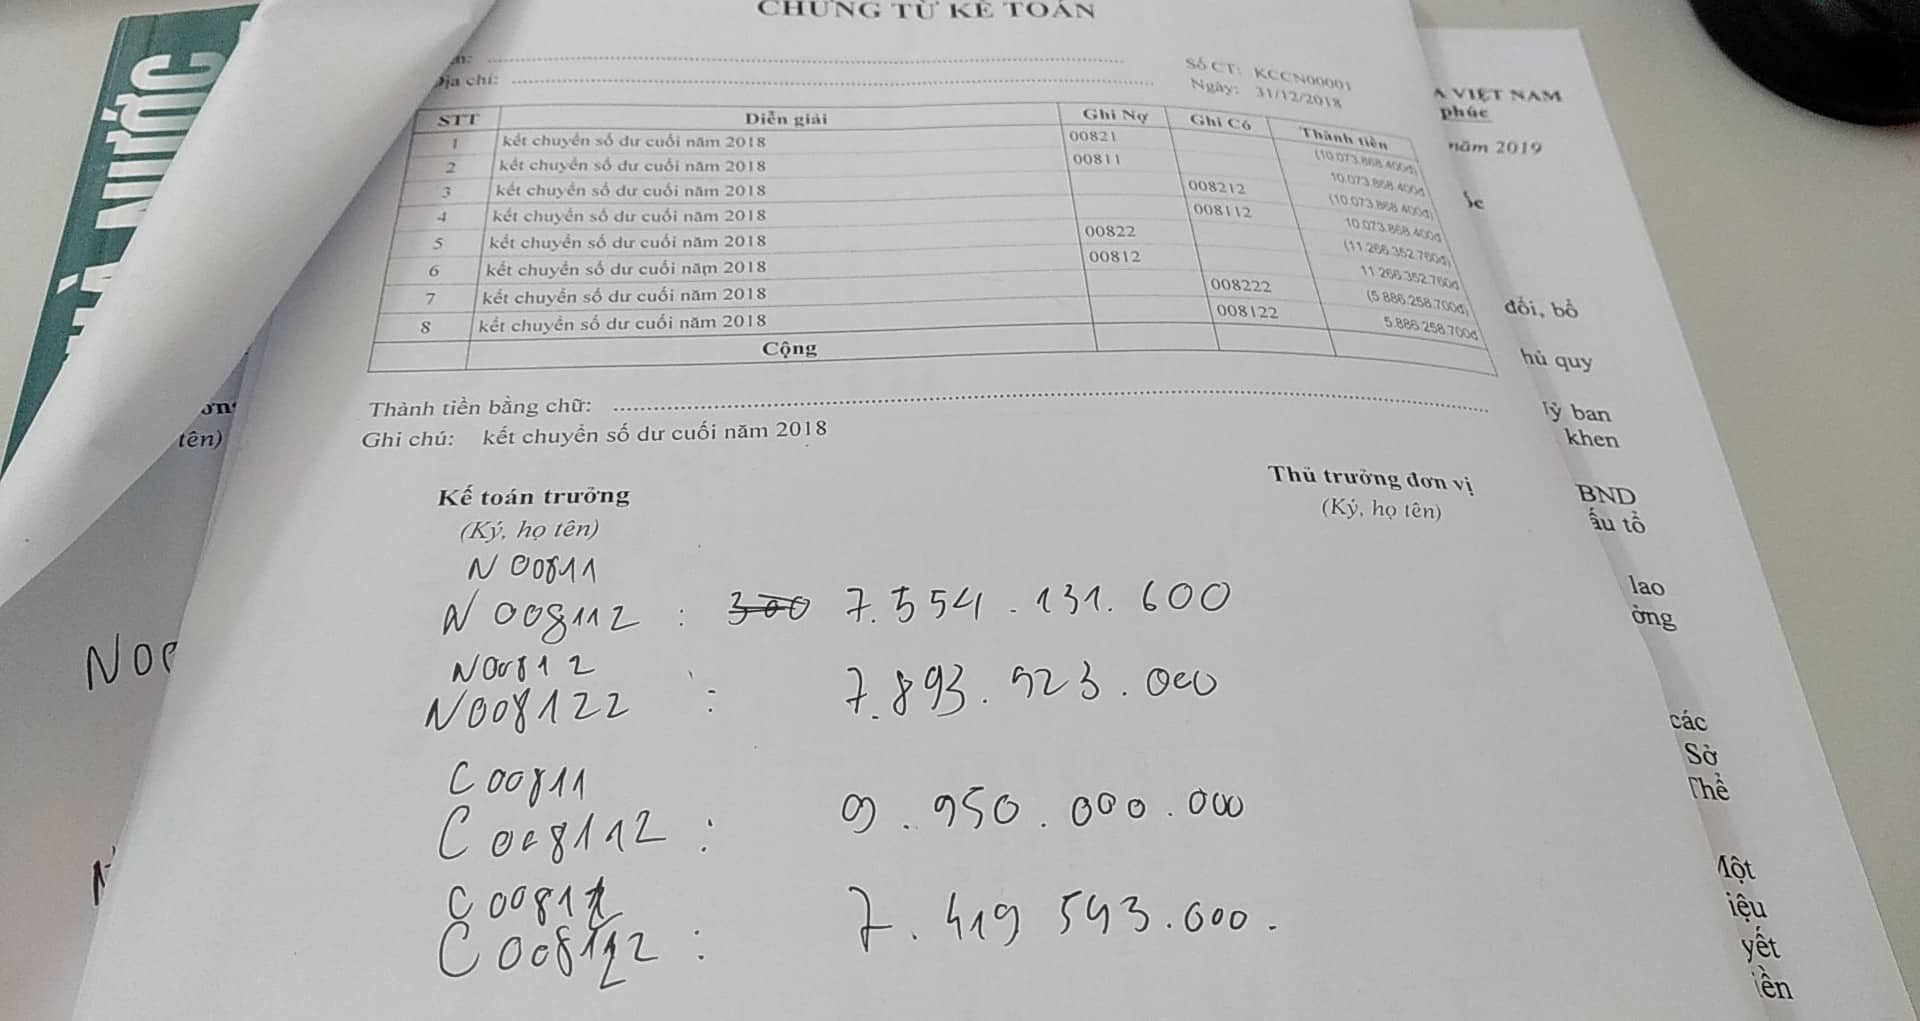 CHỨNG TỪ KẾ TOÁN
Địa chỉ:
Số CT: KCCN00001
Ngày: 31/12/2018
STT Diễn giải Ghi Nợ Ghi Có Thành tiền
1 kết chuyển số dư cuối năm 2018 00821 (10.073.868.400đ)
2 kết chuyển số dư cuối năm 2018 00811 10.073.868.400đ
3 kết chuyển số dư cuối năm 2018 008212 (10.073.868.400đ)
4 kết chuyển số dư cuối năm 2018 008112 10.073.868.400đ
5 kết chuyển số dư cuối năm 2018 00822 (11.266.352.760đ)
6 kết chuyển số dư cuối năm 2018 00812 11.266.352.760đ
7 kết chuyển số dư cuối năm 2018 008222 (5.886.258.700đ)
8 kết chuyển số dư cuối năm 2018 008122 5.886.258.700đ
Cộng
Thành tiền bằng chữ:
Ghi chú: kết chuyển số dư cuối năm 2018
Kế toán trưởng
(Ký, họ tên)
Thủ trưởng đơn vị
(Ký, họ tên)
N 00811
N 008112 : 7.554.131.600
N00812
N008122 : 7.893.923.000
C 00811
C 008112 : 9.950.000.000
C 00812
C 008122 : 7.419 543.000.
NHÀ NƯỚC
tên)
N00
A VIỆT NAM
phúc
năm 2019
đổi, bổ
hủ quy
Uỷ ban
khen
BND
ấu tổ
lao
ởng
các
Sở
Thể
Một
iệu
yết
iền